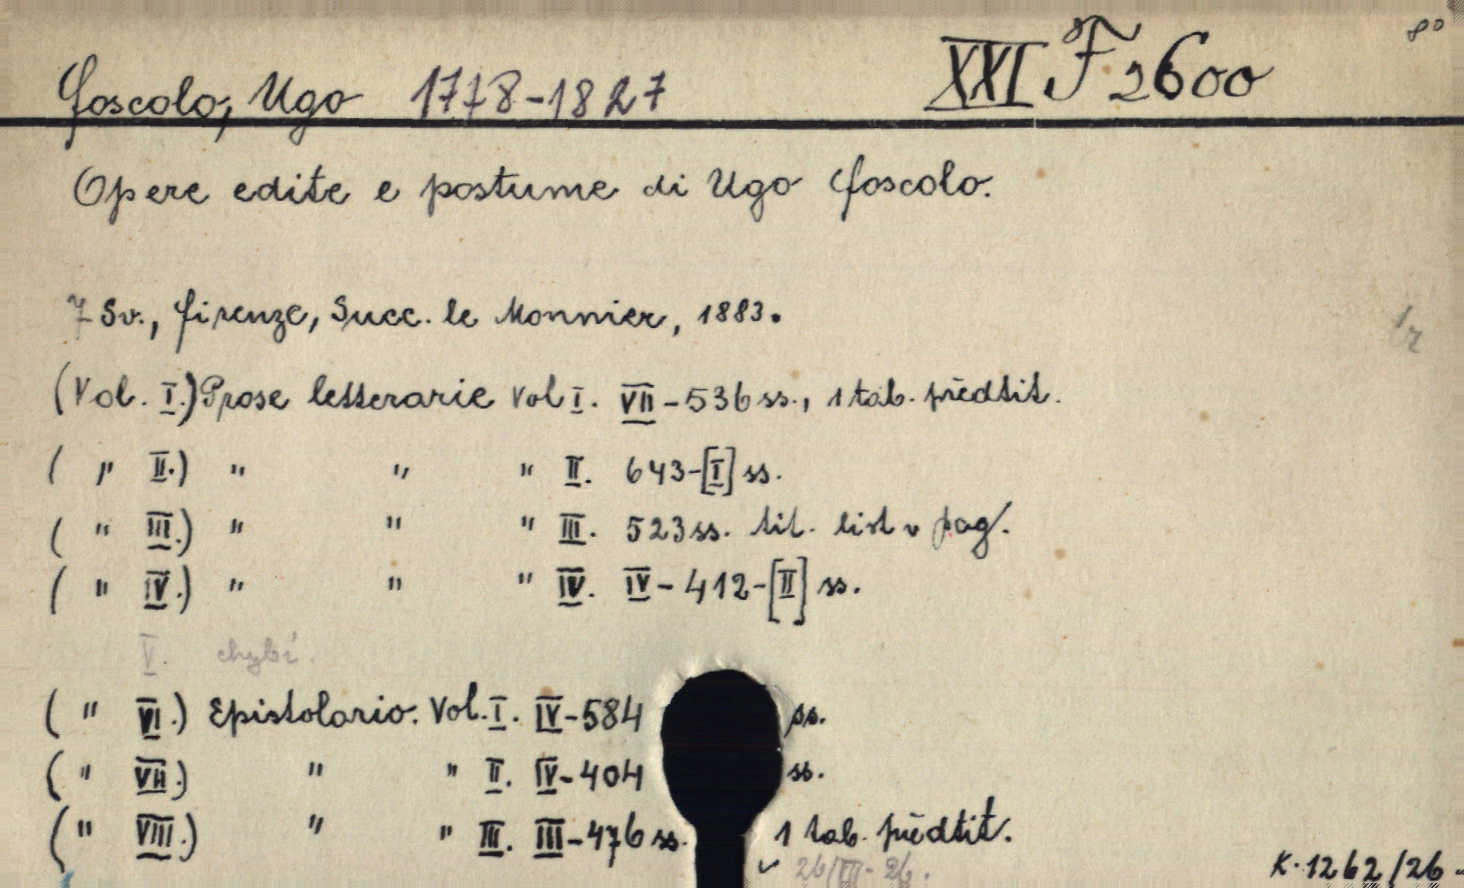 XXI F 2600
8°
Foscolo, Ugo 1778-1827
Opere edite e postume di Ugo Foscolo.
7 Sv., Firenze, Succ. le Monnier, 1883.
(Vol. I.) Prose letterarie Vol I. VII-536 ss., 1 tab. předtit.
( " II.) " " " II. 643-[I] ss.
( " III.) " " " III. 523 ss. tit. list v pag.
( " IV.) " " " IV. IV-412-[II] ss.
V. chybí.
( " VI.) Epistolario. Vol. I. IV-584 ss.
( " VII.) " " II. IV-404 ss.
( " VIII.) " " III. III-476 ss. 1 tab. předtit.
26/VII-26.
K. 1262/26